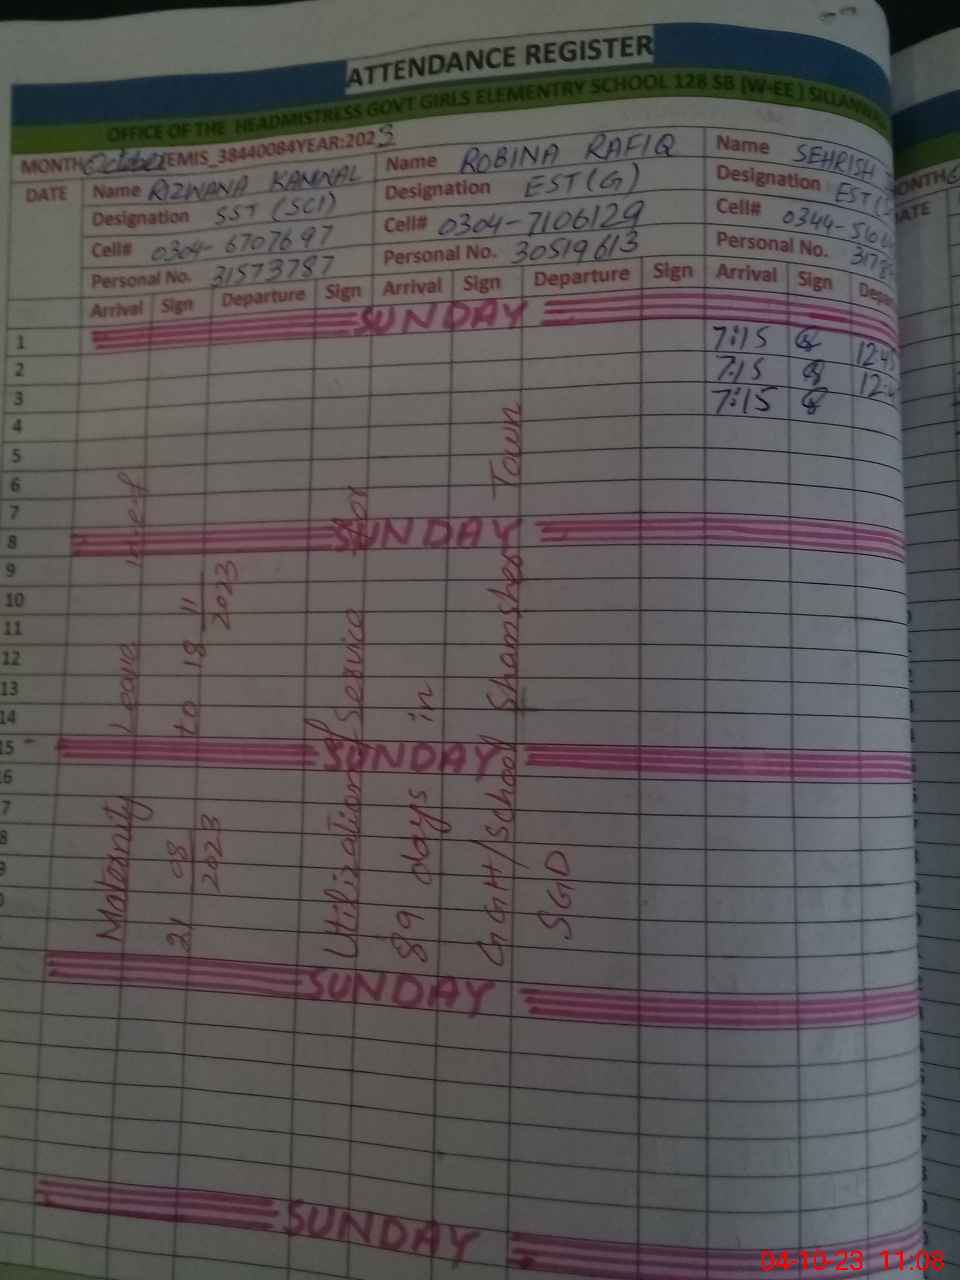 ATTENDANCE REGISTER
OFFICE OF THE HEADMISTRESS GOVT GIRLS ELEMENTRY SCHOOL 128 SB (W-EE)
MONTH October EMIS_38440084 YEAR:2023
DATE
Name RIZWANA KANWAL
Designation SST (SCI)
Cell# 0304-6707697
Personal No. 31573787
Arrival Sign Departure Sign
Name ROBINA RAFIQ
Designation EST(G)
Cell# 0304-7106129
Personal No. 30519613
Arrival Sign Departure Sign
Name SEHRISH
Designation EST
Cell# 0344-
Personal No.
Arrival Sign
SUNDAY
1
2 7:15
3 7:15
4 7:15
5
6
7
8 SUNDAY
9
10
11
12
13
14
15 SUNDAY
SUNDAY
SUNDAY
Maternity Leave
21 08/2023 to 18 11/2023
Utilization of Service for
89 days in
GGH/School Shamsheer Town
SGD
MONTH
04-10-23 11:08